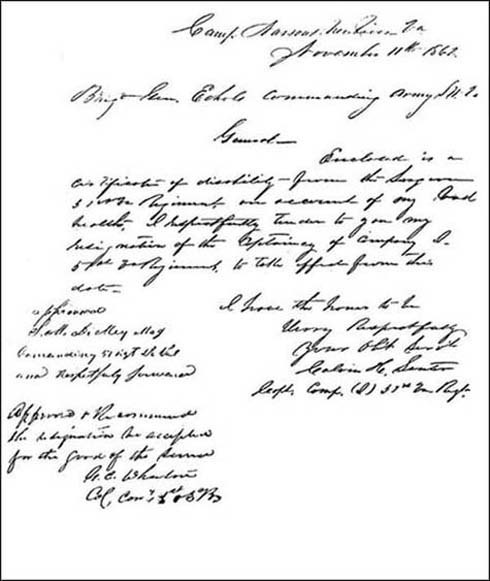 Camp Narrows New River Va
November 11th 1862
Brig Gen. Echols Commanding Army S.W. Va
General—
Enclosed is a
certificate of disability from the Surgeon
51st Va Regiment on account of my bad
health, I respectfully tender to you my
resignation of the Captaincy of Company I
51st Va Regiment, to take effect from this
date—
I have the honor to be
Very Respectfully
Your Obt Servt
Calvin H. Senter
Capt. Comp. (I) 51st Va Regt.
approved
Maj
Commanding 51 Regt Va Vol
and respectfuly forwarded
Approved & Recommend
the resignation be accepted
for the good of the service
G. C. Wharton
Col, Com'g 1st Bg